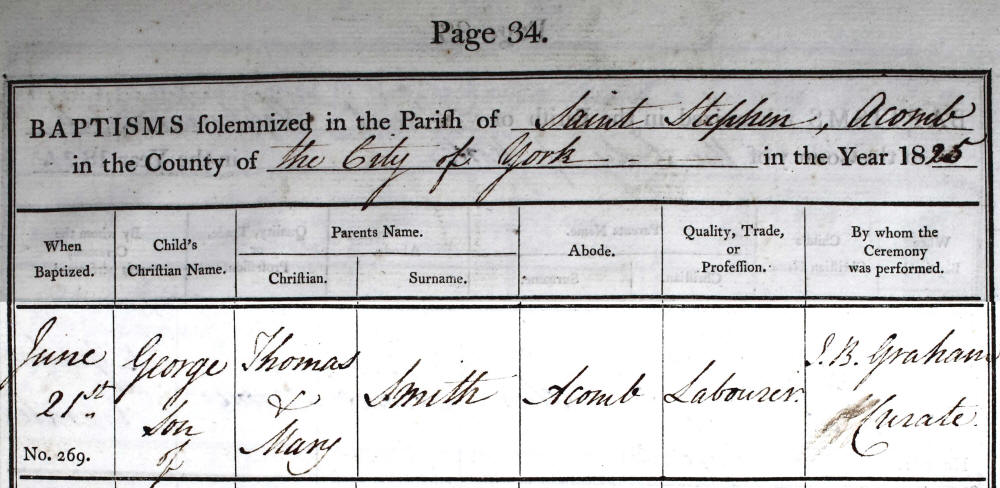 Page 34.
BAPTISMS solemnized in the Parish of Saint Stephen, Acomb
in the County of the City of York in the Year 1825
When
Baptized.
Child's
Christian Name.
Parents Name.
Christian.
Surname.
Abode.
Quality, Trade,
or
Profession.
By whom the
Ceremony
was performed.
June
21st
No. 269.
George
Son
of
Thomas
&
Mary
Smith
Acomb
Labourer.
J. B. Graham
Curate.